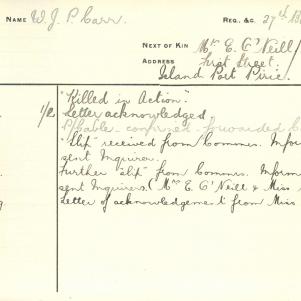 NAME W. J. P. Carr. REG. &C. 27th
NEXT OF KIN Mrs. E. O'Neill
ADDRESS First Street.
Island Port Pirie.
"Killed in Action".
1/2 Letter acknowledged
confirmed - forwarded
"Slip" received from Commrs. Inform
sent Inquirer.
Further "slip" from Commrs. Inform
sent Inquirers. (Mrs E. O'Neill & Miss
Letter of acknowledgement from Miss